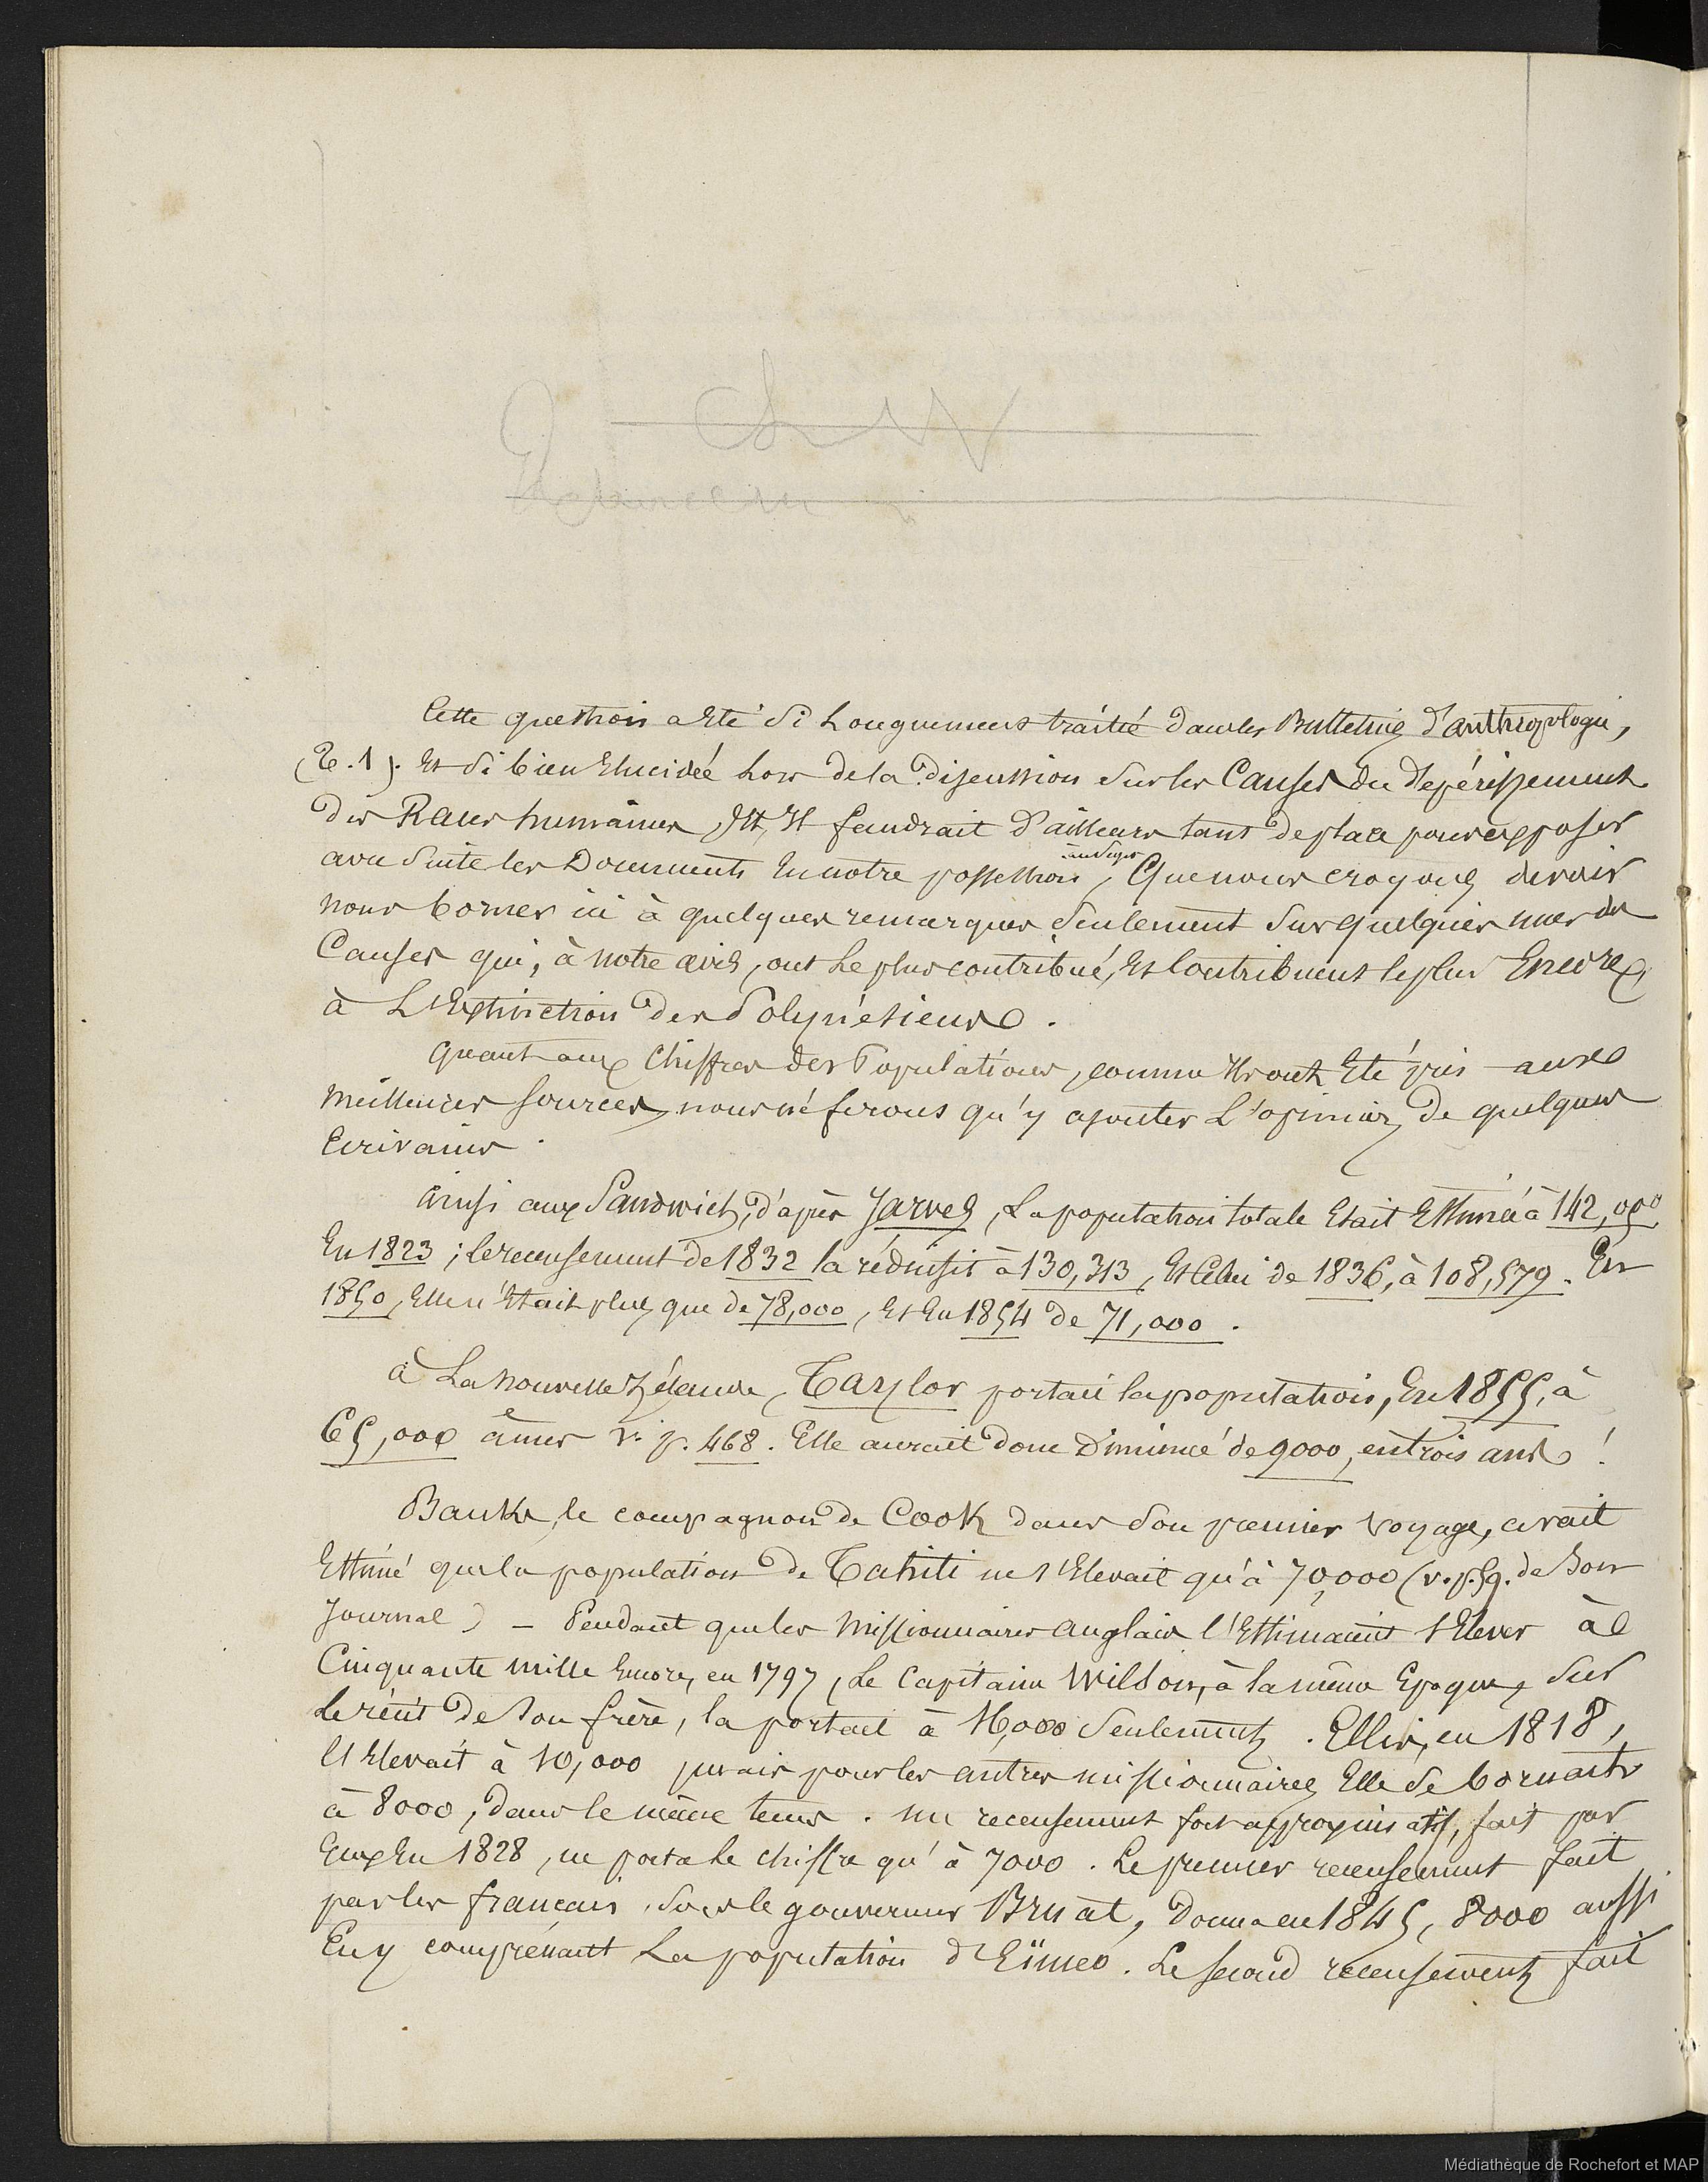 Cette question a Eté si Longuement traitée dans les Bulletins d'anthropologie,
(T. 1). Et si bien Elucidée Lors de la Discussion sur les Causes du Dépérissement
des Races humaines, Il faudrait d'ailleurs tant de place pour exposer
avec suite les Documents En notre possession, Que nous croyons devoir
nous borner ici à quelques remarques seulement sur quelques unes des
Causes qui, à notre avis, ont Le plus contribué, Et Contribuent le plus Encore,
à L'Extinction des Polynésiens.
Quant aux Chiffres des Populations, comme Ils ont Eté pris aux
meilleures sources, nous ne ferons qu'y ajouter L'opinion de quelques
Ecrivains.
Ainsi aux Sandwich, d'après Jarves, La population totale Etait Estimée à 142,050
En 1823 ; le recensement de 1832 la réduisit à 130,313, Et Celui de 1836, à 108,579. En
1850, Elle n'Etait plus que de 78,000, Et En 1854 de 71,000.
à La Nouvelle Zélande, Taylor portait la population, En 1855, à
65,000 âmes v. p. 468. Elle aurait donc Diminué de 9000, en trois ans !
Banks, le compagnon de Cook dans son premier voyage, avait
Estimé que la population de Tahiti ne s'Elevait qu'à 70,000 (v. p. 59. de Son
Journal) - Pendant que les Missionnaires anglais l'Estimaient s'Elever à
Cinquante mille Encore, en 1797, Le Capitaine Wilson, à la même Epoque, sur
Le récit de Son frère, la portait à 16,000 seulement. Ellis, en 1818,
l'Elevait à 10,000 mais pour les autres missionnaires Elle se bornait
à 8000, dans le même tems. Un recensement fort approximatif, fait par
Eux En 1828, ne porta le chiffre qu'à 7000. Le premier recensement fait
par les français, sous le gouverneur Bruat, Donna en 1845, 8000 aussi
En y comprenant La population d'Eïmeo. Le second recensement fait
Médiathèque de Rochefort et MAP